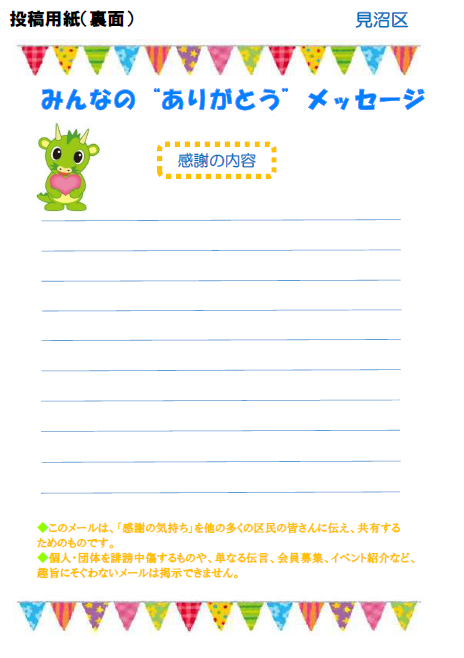 投稿用紙（裏面）
見沼区
みんなの“ありがとう”メッセージ
感謝の内容
◆このメールは、「感謝の気持ち」を他の多くの区民の皆さんに伝え、共有する
ためのものです。
◆個人・団体を誹謗中傷するものや、単なる伝言、会員募集、イベント紹介など、
趣旨にそぐわないメールは掲示できません。